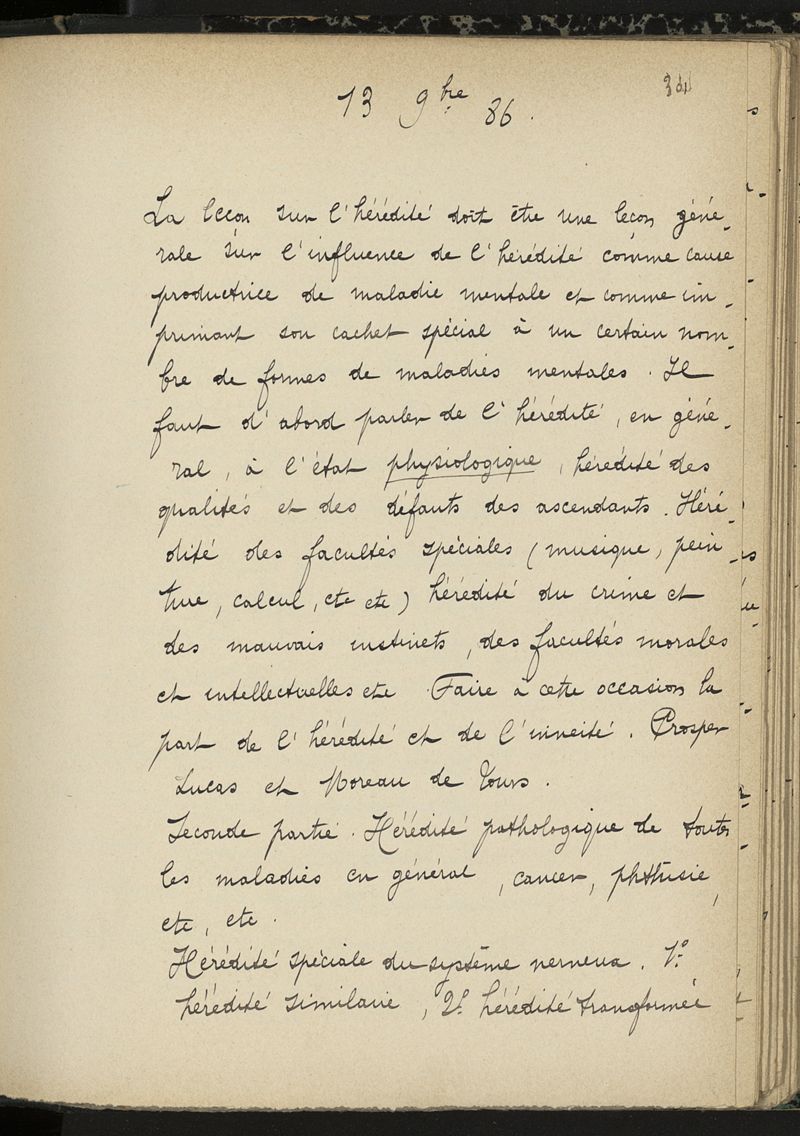 13 9bre 86.
La leçon sur l'hérédité doit être une leçon géné-
rale sur l'influence de l'hérédité comme cause
productrice de maladie mentale et comme im-
primant son cachet spécial à un certain nom-
bre de formes de maladies mentales. Il
faut d'abord parler de l'hérédité, en géné-
ral, à l'état physiologique, hérédité des
qualités et des défauts des ascendants. Héré-
dité des facultés spéciales (musique, pein-
ture, calcul, etc etc) hérédité du crime et
des mauvais instincts, des facultés morales
et intellectuelles etc. Faire à cette occasion la
part de l'hérédité et de l'innéité. Prosper
Lucas et Moreau de Tours.
Seconde partie. Hérédité pathologique de toutes
les maladies en général, cancer, phthisie,
etc, etc.
Hérédité spéciale du système nerveux. 1°.
hérédité similaire, 2° hérédité transformée